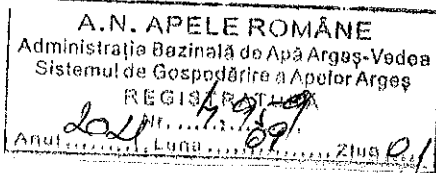 A.N. APELE ROMÂNE
Administraţia Bazinală de Apă Argeş-Vedea
Sistemul de Gospodărire a Apelor Argeş
REGISTRATURA
Nr.
Anul 2021 Luna 09 Ziua 01